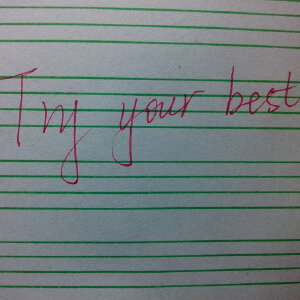 Try your best